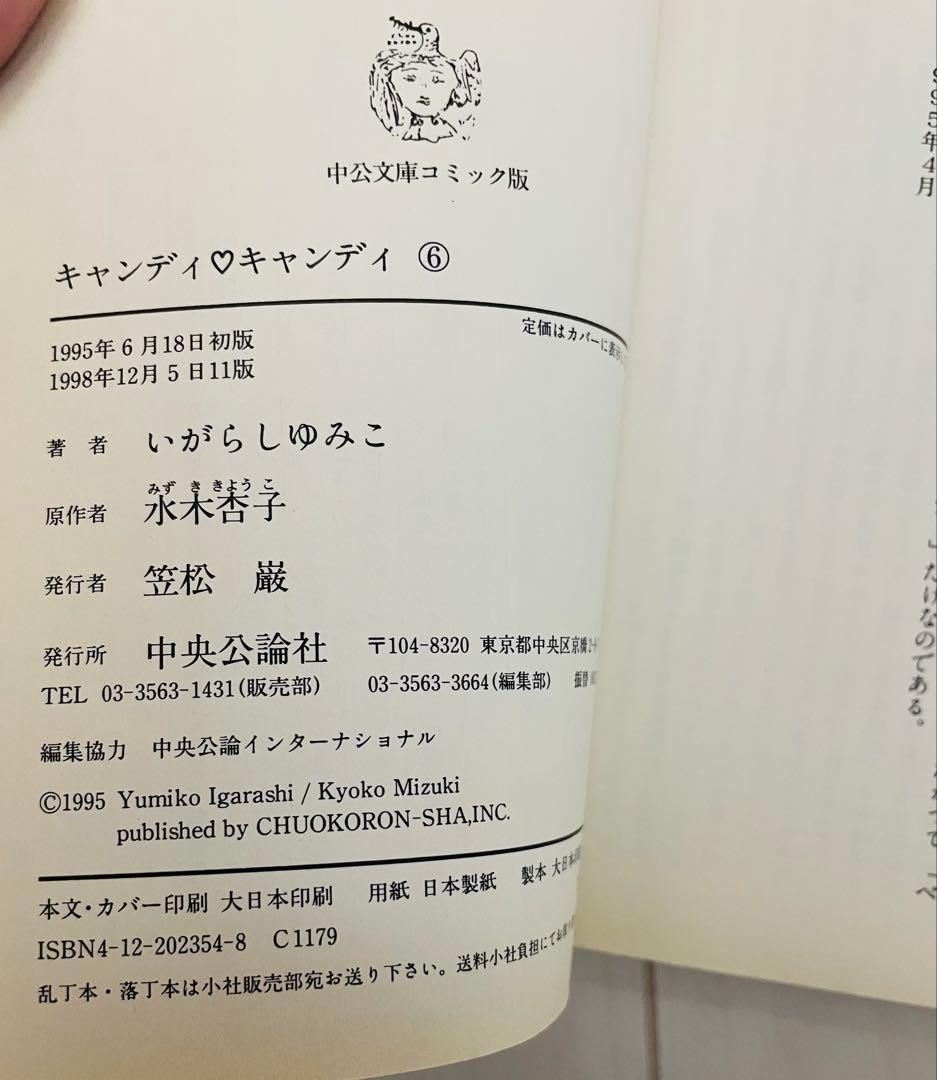 中公文庫コミック版
キャンディ♡キャンディ ⑥
定価はカバーに表示
1995年6月18日初版
1998年12月5日11版
著 者 いがらしゆみこ
原作者 水木杏子
みず き きよう こ
発行者 笠松 巌
発行所 中央公論社 〒104-8320 東京都中央区京橋2-
TEL 03-3563-1431(販売部) 03-3563-3664(編集部) 振替
編集協力 中央公論インターナショナル
©1995 Yumiko Igarashi / Kyoko Mizuki
published by CHUOKORON-SHA,INC.
本文・カバー印刷 大日本印刷 用紙 日本製紙 製本 大日本
ISBN4-12-202354-8 C1179
乱丁本・落丁本は小社販売部宛お送り下さい。送料小社負担にてお
95年4月
」だけなのである。